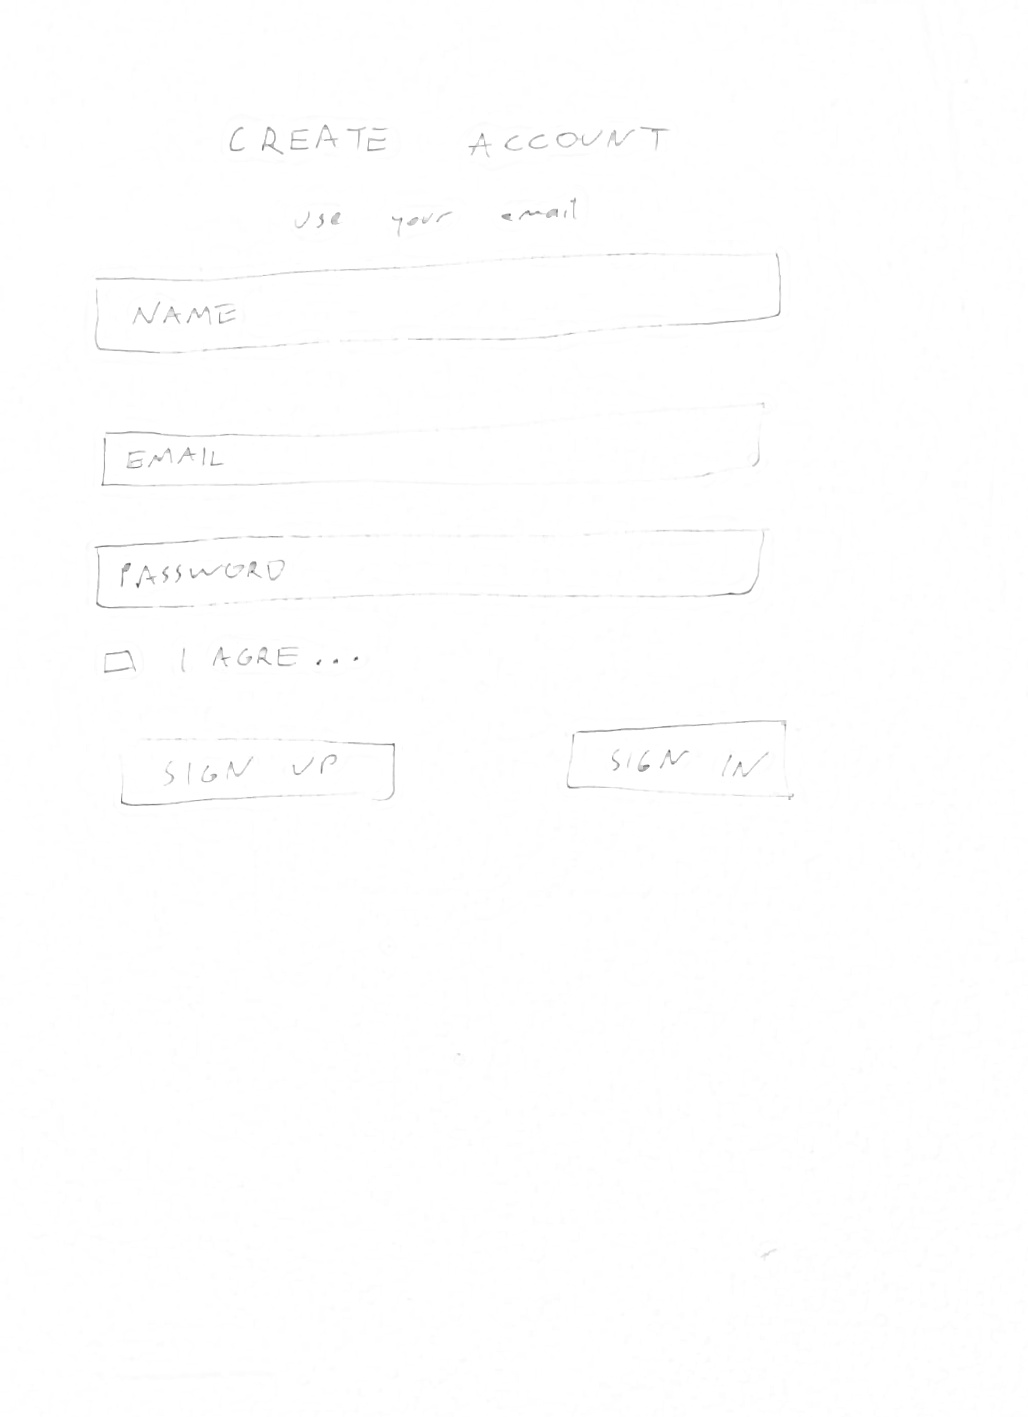 CREATE ACCOUNT
use your email
NAME
EMAIL
PASSWORD
I AGRE...
SIGN UP
SIGN IN